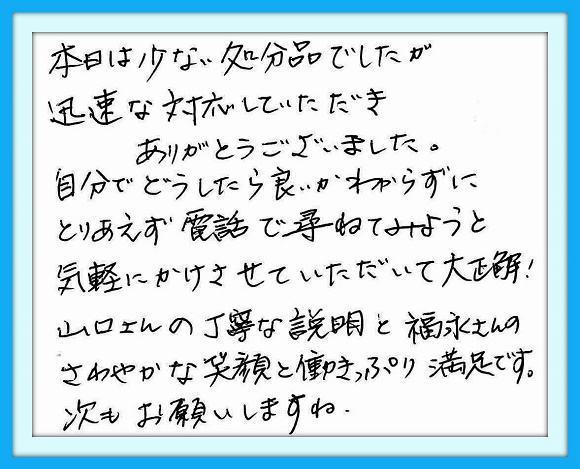 本日は少ない処分品でしたが
迅速な対応していただき
ありがとうございました。
自分でどうしたら良いかわからずに
とりあえず電話で尋ねてみようと
気軽にかけさせていただいて大正解!
山口さんの丁寧な説明と福永さんの
さわやかな笑顔と働きっぷり満足です。
次もお願いしますね.